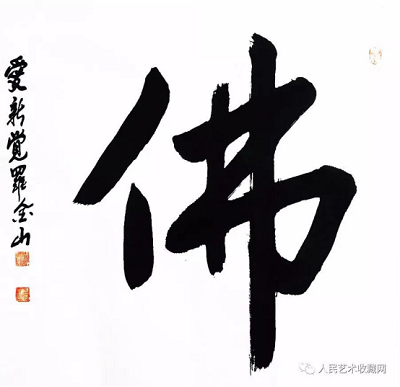 佛
愛新覺羅金山
人民艺术收藏网